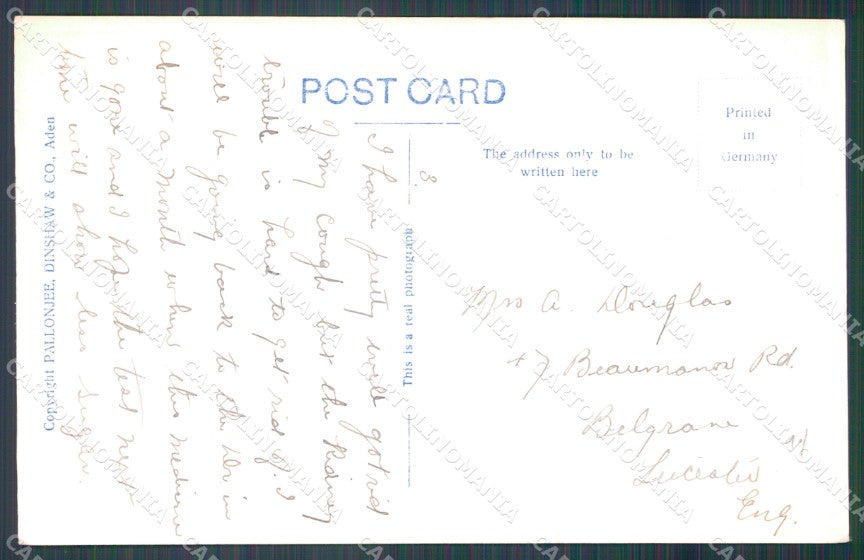 POST CARD
Printed
in
Germany
The address only to be
written here
Copyright PALLONJEE, DINSHAW & CO., Aden
This is a real photograph
3
I have pretty well got rid
of my cough but the Kidney
trouble is hard to get rid of. I
will be going back to the Dr in
about a month when this medicine
is gone and I hope the test next
time will show less sugar.
Mrs A. Douglas
47 Beaumanor Rd.
Belgrave
Leicester
Eng.
CARTOLINOMANIA